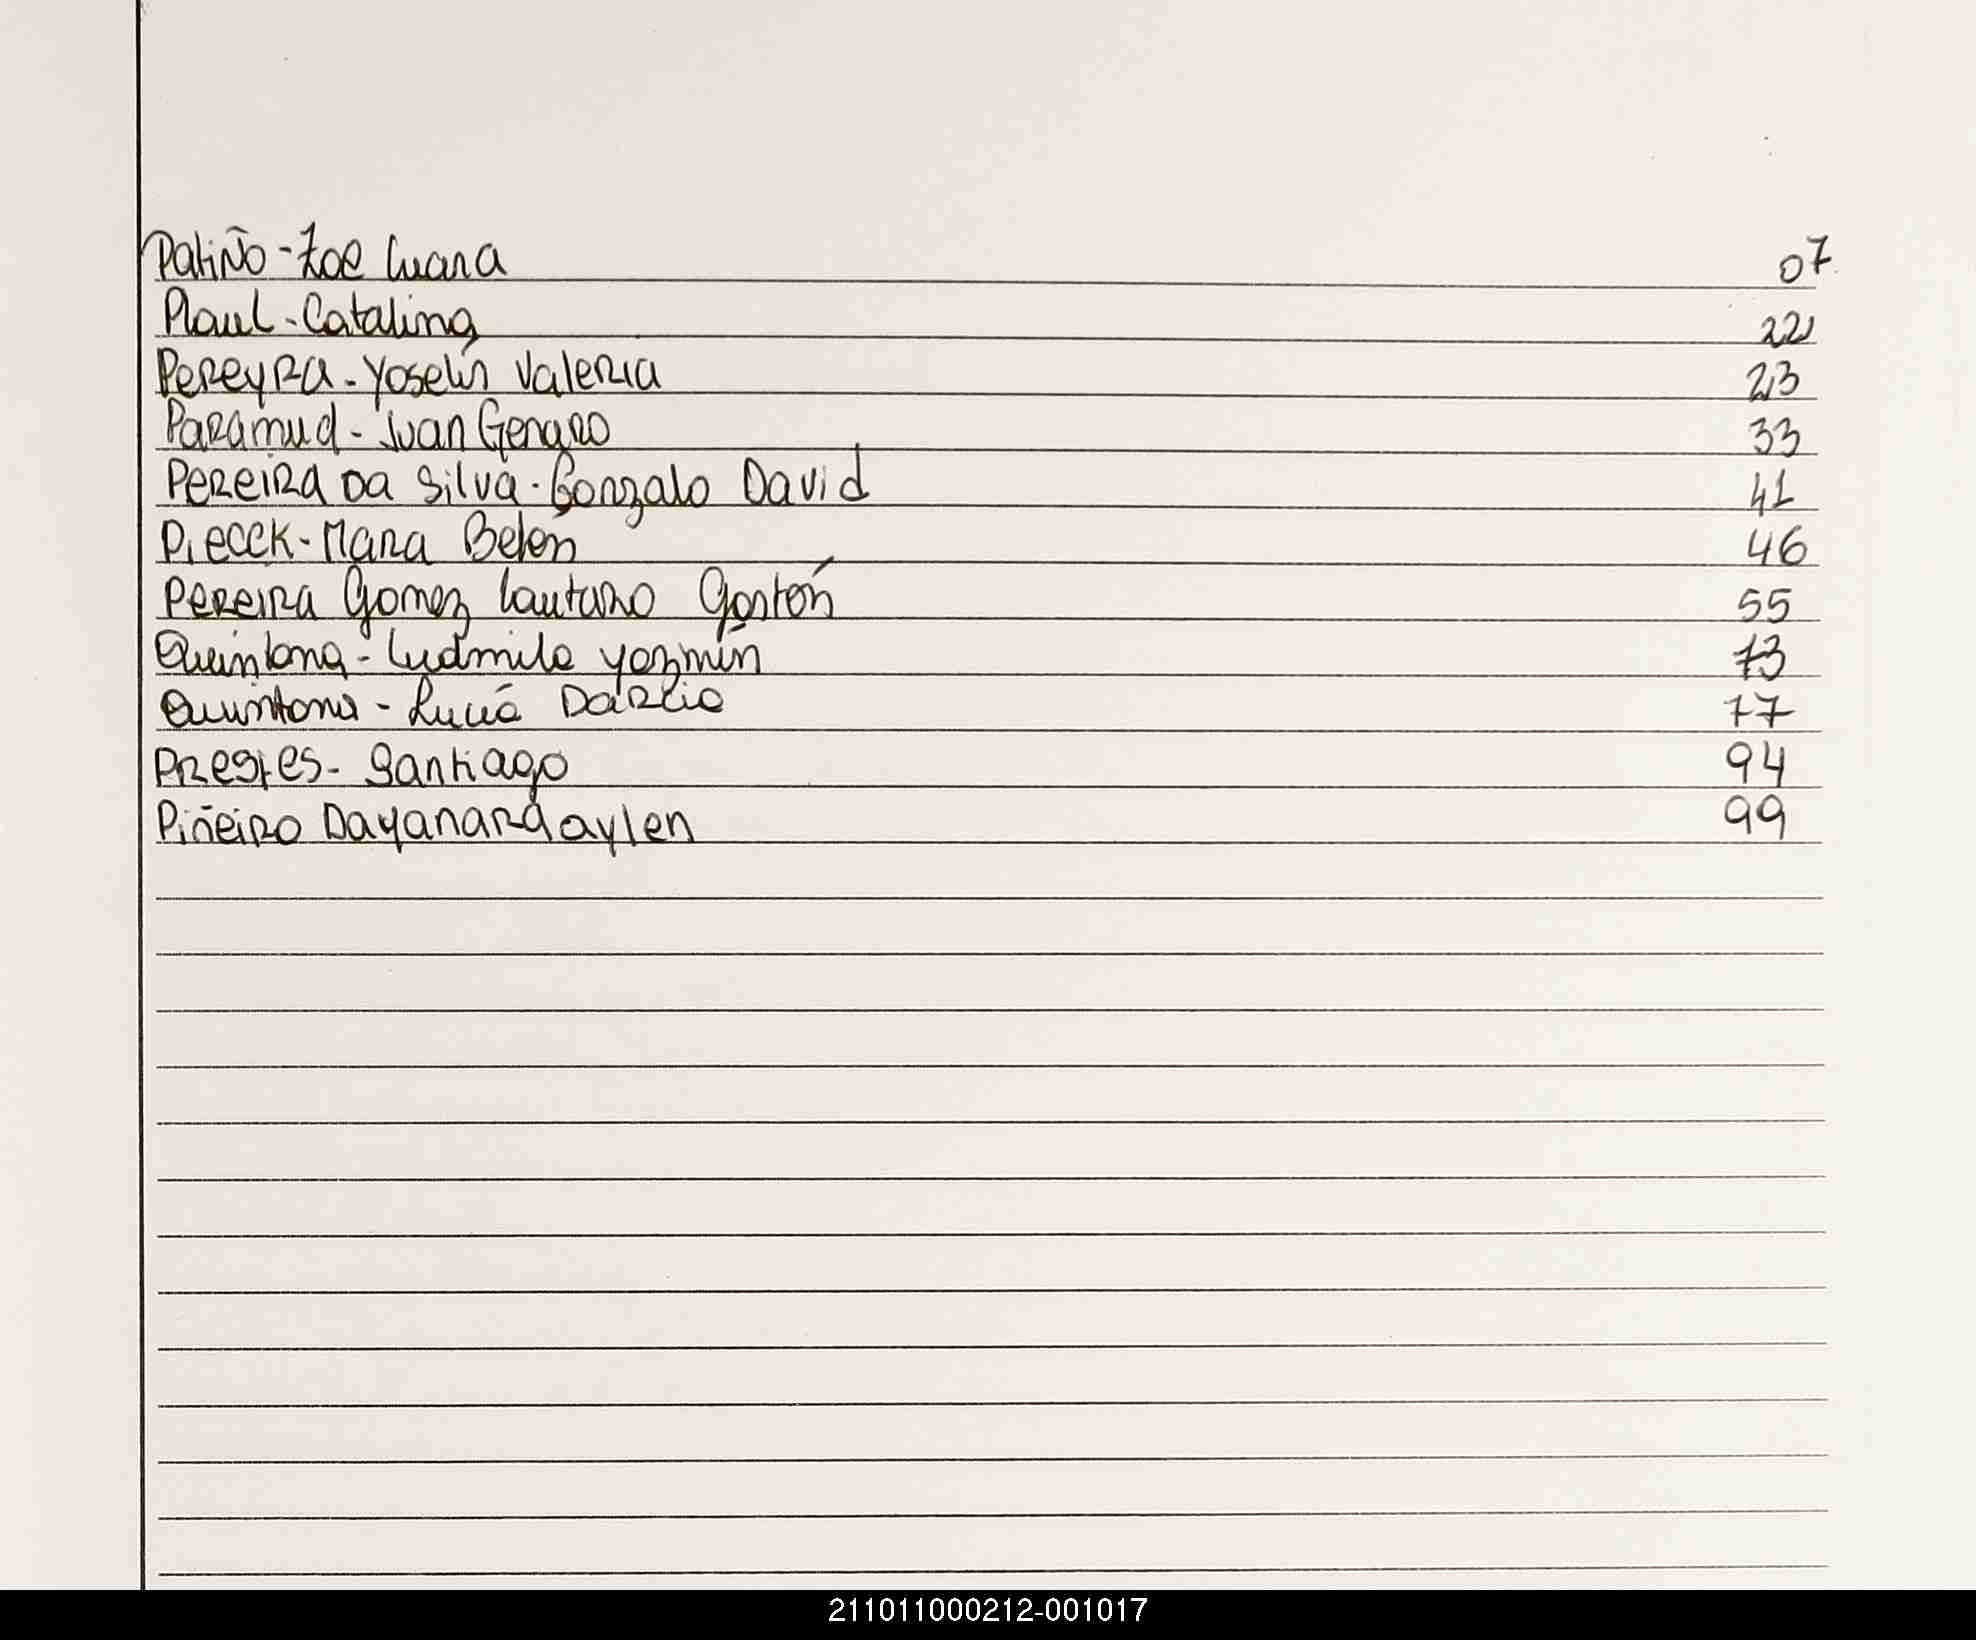 Patiño - Zoe Luana 07
Plaul - Catalina 22
Pereyra - Yoselin Valeria 23
Paramud - Juan Genaro 33
Pereira Da Silva - Gonzalo David 41
Piecck - Mara Belén 46
Pereira Gomez Lautaro Gastón 55
Quintana - Ludmila Yazmín 73
Quintana - Lucía 77
Prestes - Santiago 94
Piñeiro Dayanara aylen 99
211011000212-001017